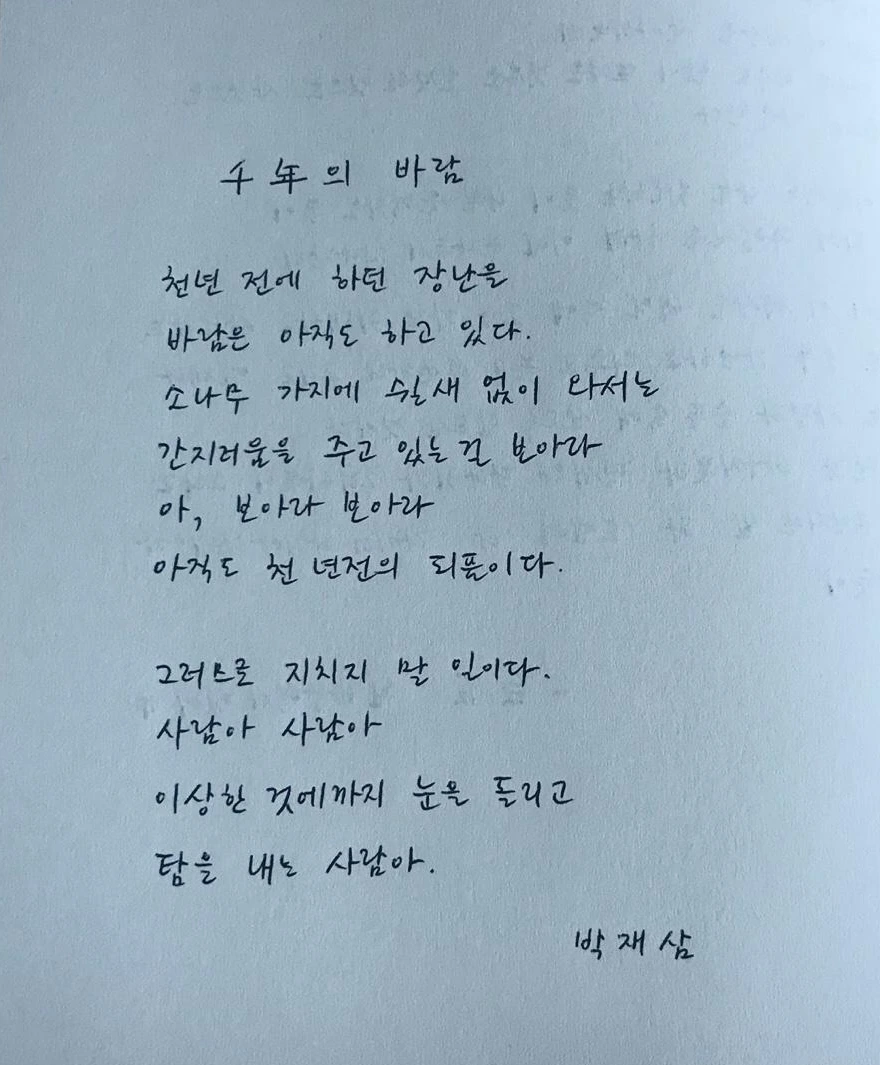 千年의 바람
천년 전에 하던 장난을
바람은 아직도 하고 있다.
소나무 가지에 쉴새 없이 와서는
간지러움을 주고 있는걸 보아라
아, 보아라 보아라
아직도 천 년전의 되풀이다.
그러므로 지치지 말 일이다.
사람아 사람아
이상한 것에까지 눈을 돌리고
탐을 내는 사람아.
박재삼